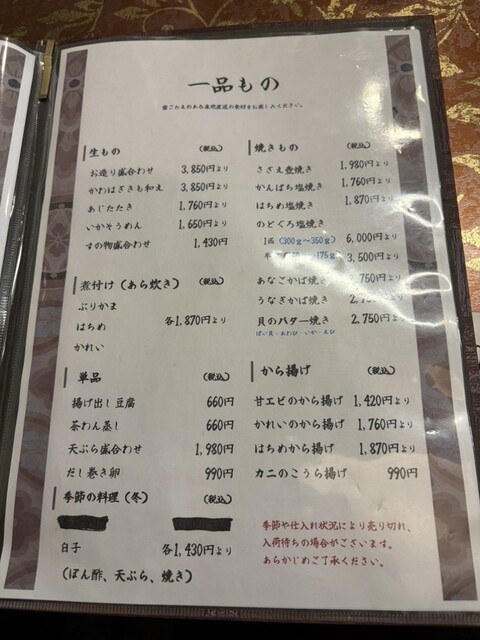 一品もの
生もの (税込)
お造り盛合わせ 3,850円より
かわはぎきも和え 3,850円より
あじたたき 1,760円より
いかそうめん 1,650円より
すの物盛合わせ 1,430円
煮付け(あら炊き) (税込)
ぶりかま
はちめ 各1,870円より
かれい
単品 (税込)
揚げ出し豆腐 660円
茶わん蒸し 660円
天ぷら盛合わせ 1,980円
だし巻き卵 990円
季節の料理(冬) (税込)
白子 各1,430円より
(ぽん酢、天ぷら、焼き)
焼きもの (税込)
さざえ壺焼き 1,980円より
かんぱち塩焼き 1,760円より
はちめ塩焼き 1,870円より
のどくろ塩焼き
1匹(300g〜350g) 6,000円より
175g) 3,500円より
あなごかば焼き 750円より
うなぎかば焼き
貝のバター焼き 2,750円より
ばい貝・あわび・いか・えび
から揚げ (税込)
甘エビのから揚げ 1,420円より
かれいのから揚げ 1,760円より
はちめから揚げ 1,870円より
カニのこうら揚げ 990円
季節や仕入れ状況により売り切れ、
入荷待ちの場合がございます。
あらかじめご了承ください。